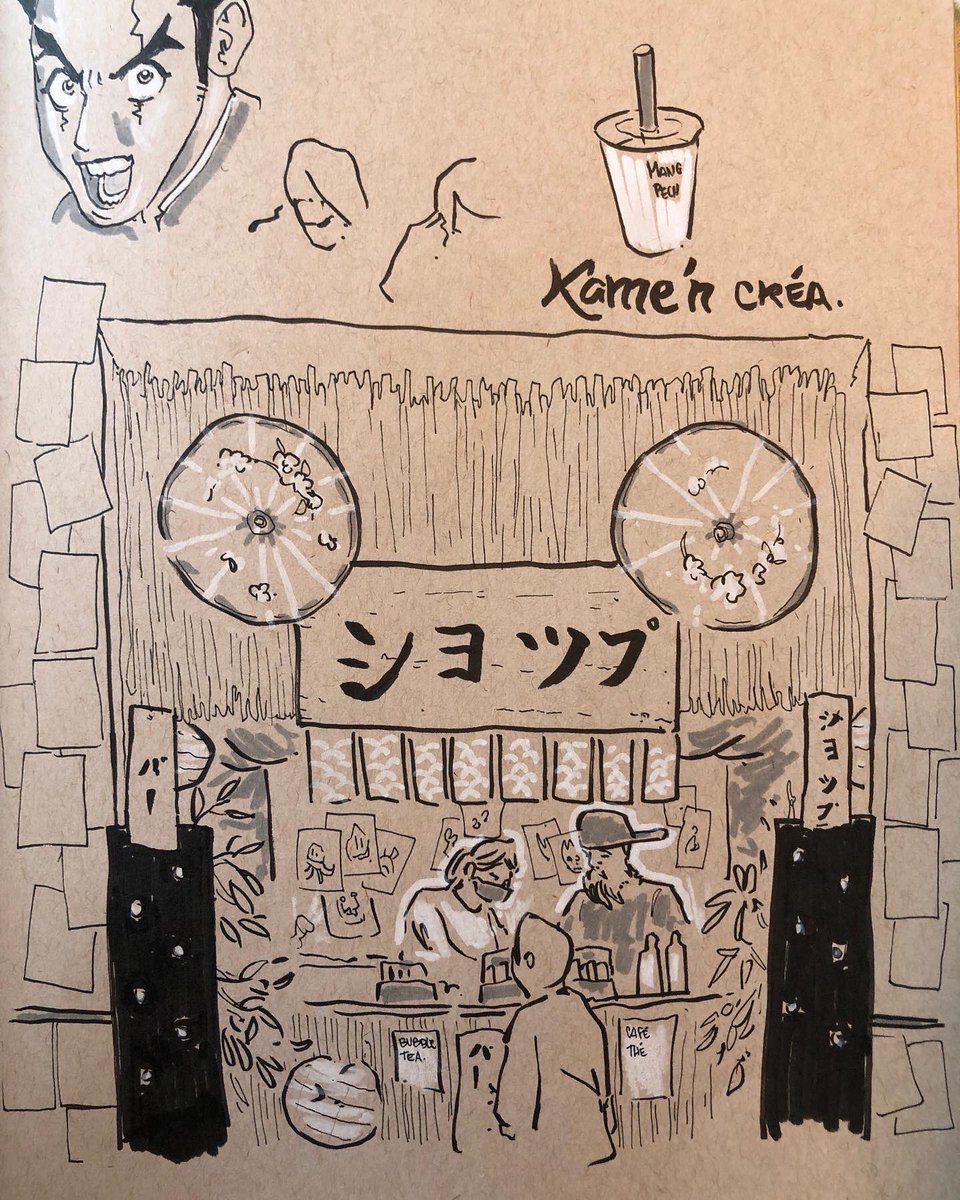 MANG
PECH
Kame'n CRÉA.
ショップ
バー
ショップ
BUBBLE
TEA.
バー
CAFÉ
THÉ